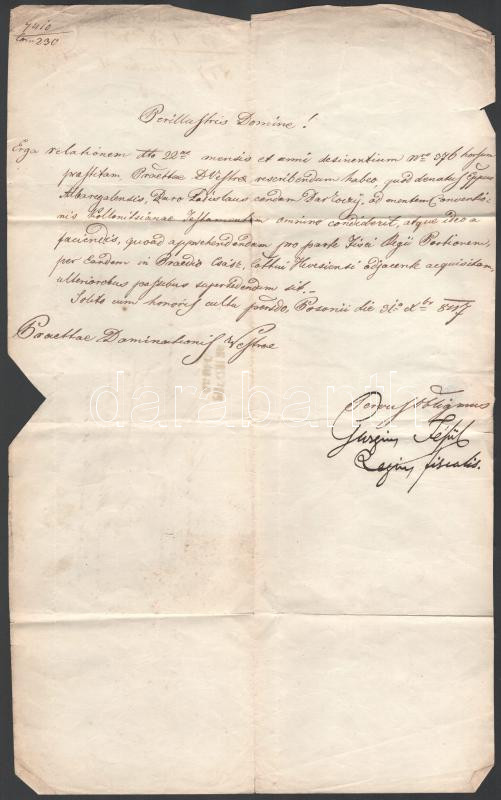 7410
230
Perillustris Domine!
Erga relationem dtto 22ae mensis et anni desinentium Nro 376 horsum
praestitam, Praettae D Vestrae rescribendum habeo, quod denatus Eppus
Albaregalensis, Baro Ladislaus condam Barkoczy, ad mentem Conventio
nis Kollonitsianae Testamentum omnino condiderit, atque ideo a
faciendis, quoad apprehendendam pro parte Fisci Regii Portionem,
per Eundem in Praedio Csász, Cottui Hevesiensi adjacente acquisitam,
ulterioribus passubus supersedendum sit.
Solito cum honoris cultu persto, Posonii die 31a Xbr 847
Praettae Dominationis Vestrae
Servus obligmus
Regius fiscalis.
darabanth